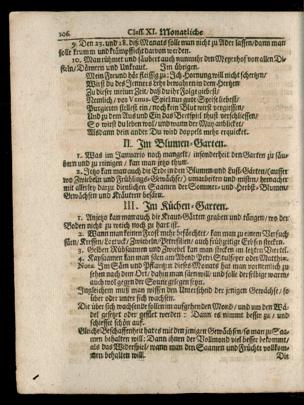 206. Class. XI. Monatliche
9. Den 23. und 28. diß Monats solle man nicht zu Ader lassen/ dann man
solle krumm und krämpffsicht davon werden.
10. Man rühmet und säubert auch nunmehr den Meyerhof von allen Di-
steln/ Dörnern und Unkraut. Im übrigen.
Mein Freund hör fleissig zu: Ich Hornung will nicht schertzen/
Wirst du des Jenners Lehr bewahren in dem Hertzen
Zu dieser meiner Zeit/ daß du ihr Folge giebest/
Nemlich/ vor Venus-Spiel nur gute Speise liebest/
Purgieren stellest ein/ noch kein Blut wirst vergiessen/
Und zu dem Mus und Ein das Brettspiel thust verschliessen/
So wirst du leben wol/ und wann der May anblicket/
Alsdann dein ander Du wird doppelt mehr erquicket.
II. Im Blumen-Garten.
1. Was im Januario noch mangelt/ insonderheit den Garten zu säu-
bern und zu reinigen/ kan man jetzo thun.
2. Jetzo kan man auch die Erde in den Blumen- und Kuß-Gärten/
wo Zwiebeln und Frühlings-Gewächse/ umarbeiten und misten/ hernacher
mit allerley darzu dienlichen Saamen der Sommer- und Herbst-Blumen/
Gewächsen und Kräutern besäen.
III. Im Küchen-Garten.
1. Anjetzo kan man auch die Kraut-Gärten graben und tüngen/ wo der
Boden nicht zu weich noch zu hart ist.
2. Wann man keinen Frost mehr befürchtet/ kan man zu einem Versuch
säen/ Kressen/ Zwiebeln/ Petersilien/ auch frühzeitige Erbsen stecken.
3. Gelbe Rüblsaamen und Zwiebel kan man stecken im letzten Viertel.
4. Saamen kan man säen am Abend Petri Stulfeyer oder Matthiæ.
Nota. Im Säen und Pflantzen dieses Monats hat man vornemlich zu
sehen nach dem Ort/ dahin man säen will und solle der selbige warm/
auch wol gegen der Sonne gelegen seyn.
Ingleichen muß man wissen den Unterscheid der jenigen Gewächse/ so
über oder unter sich wachsen.
Die über sich wachsende sollen im aufgehenden Mond/ und um den Wä-
del gesetzt oder gesäet werden: Dann es nimmt besser zu/ und
schiesset schön auf.
Gleiche Beschaffenheit hat es mit den jenigen Gewächsen/ so man zu Saa-
men behalten will: Dann ihnen der Vollmond viel besser bekommt/
als das Widerspiel/ wann man den Saamen und Früchte vollkom-
men behalten will. Die